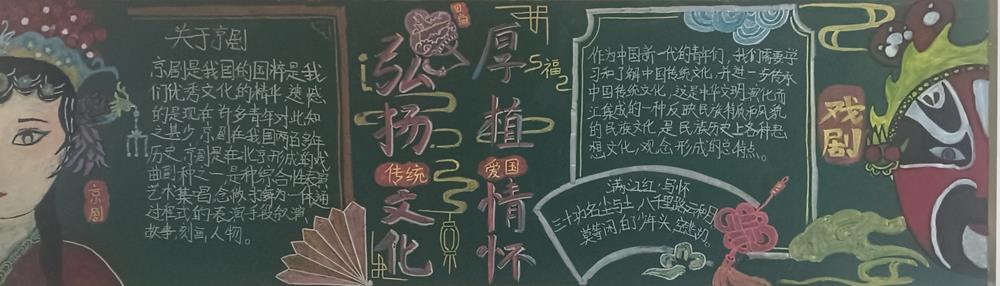 关于京剧
京剧是我国的国粹是我
们优秀文化的精华,遗憾
的是现在许多青年对此知
之甚少,京剧在我国两百多年
历史,京剧是在北京形成的戏
曲剧种之一是一种综合性表演
艺术集唱念做打舞为一体通
过程式的表演手段叙演
故事,刻画人物。
京剧
弘扬
传统
文化
厚植
爱国
情怀
福
作为中国新一代的青年们,我们需要学
习和了解中国传统文化,并进一步传承
中国传统文化,这是中华文明演化而
汇集成的一种反映民族特质和风貌
的民族文化,是民族历史上各种思
想文化,观念形成的总特点。
满江红·写怀
三十功名尘与土,八千里路云和月
莫等闲,白了少年头,空悲切。
戏剧